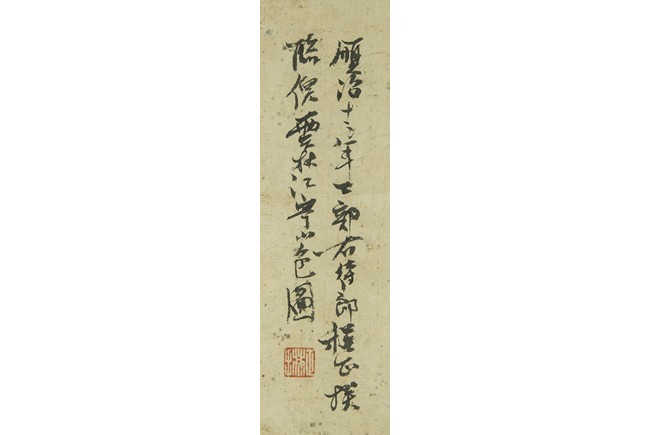 順治十六年工部右侍郎程正揆
臨倪雲林江寧山色圖